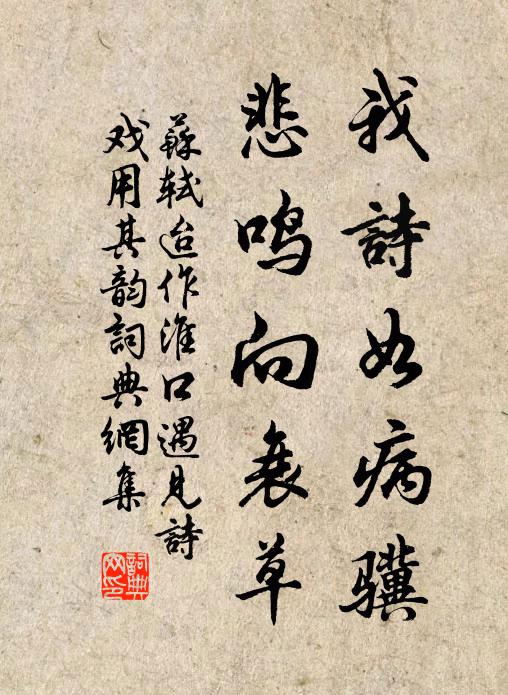 我詩如病骥
悲鸣向衰草
蘇轼迨作淮口遇見詩
戏用其韵詞典網集
詞典
网印